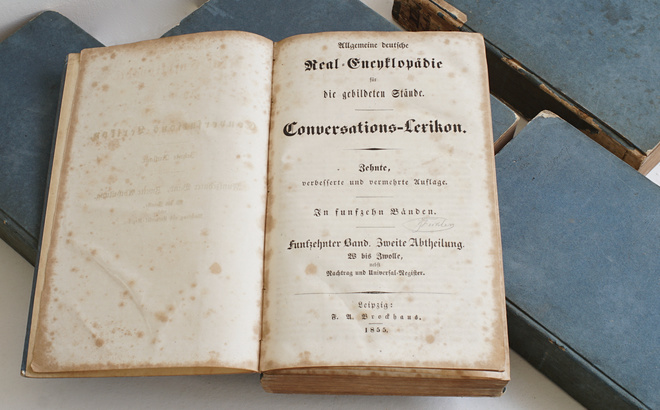 Allgemeine deutsche
Real-Encyklopädie
für
die gebildeten Stände.
Conversations-Lexikon.
Zehnte,
verbesserte und vermehrte Auflage.
In funfzehn Bänden.
Funfzehnter Band. Zweite Abtheilung.
W bis Zwolle,
nebst
Nachtrag und Universal-Register.
Leipzig:
F. A. Brockhaus.
1855.